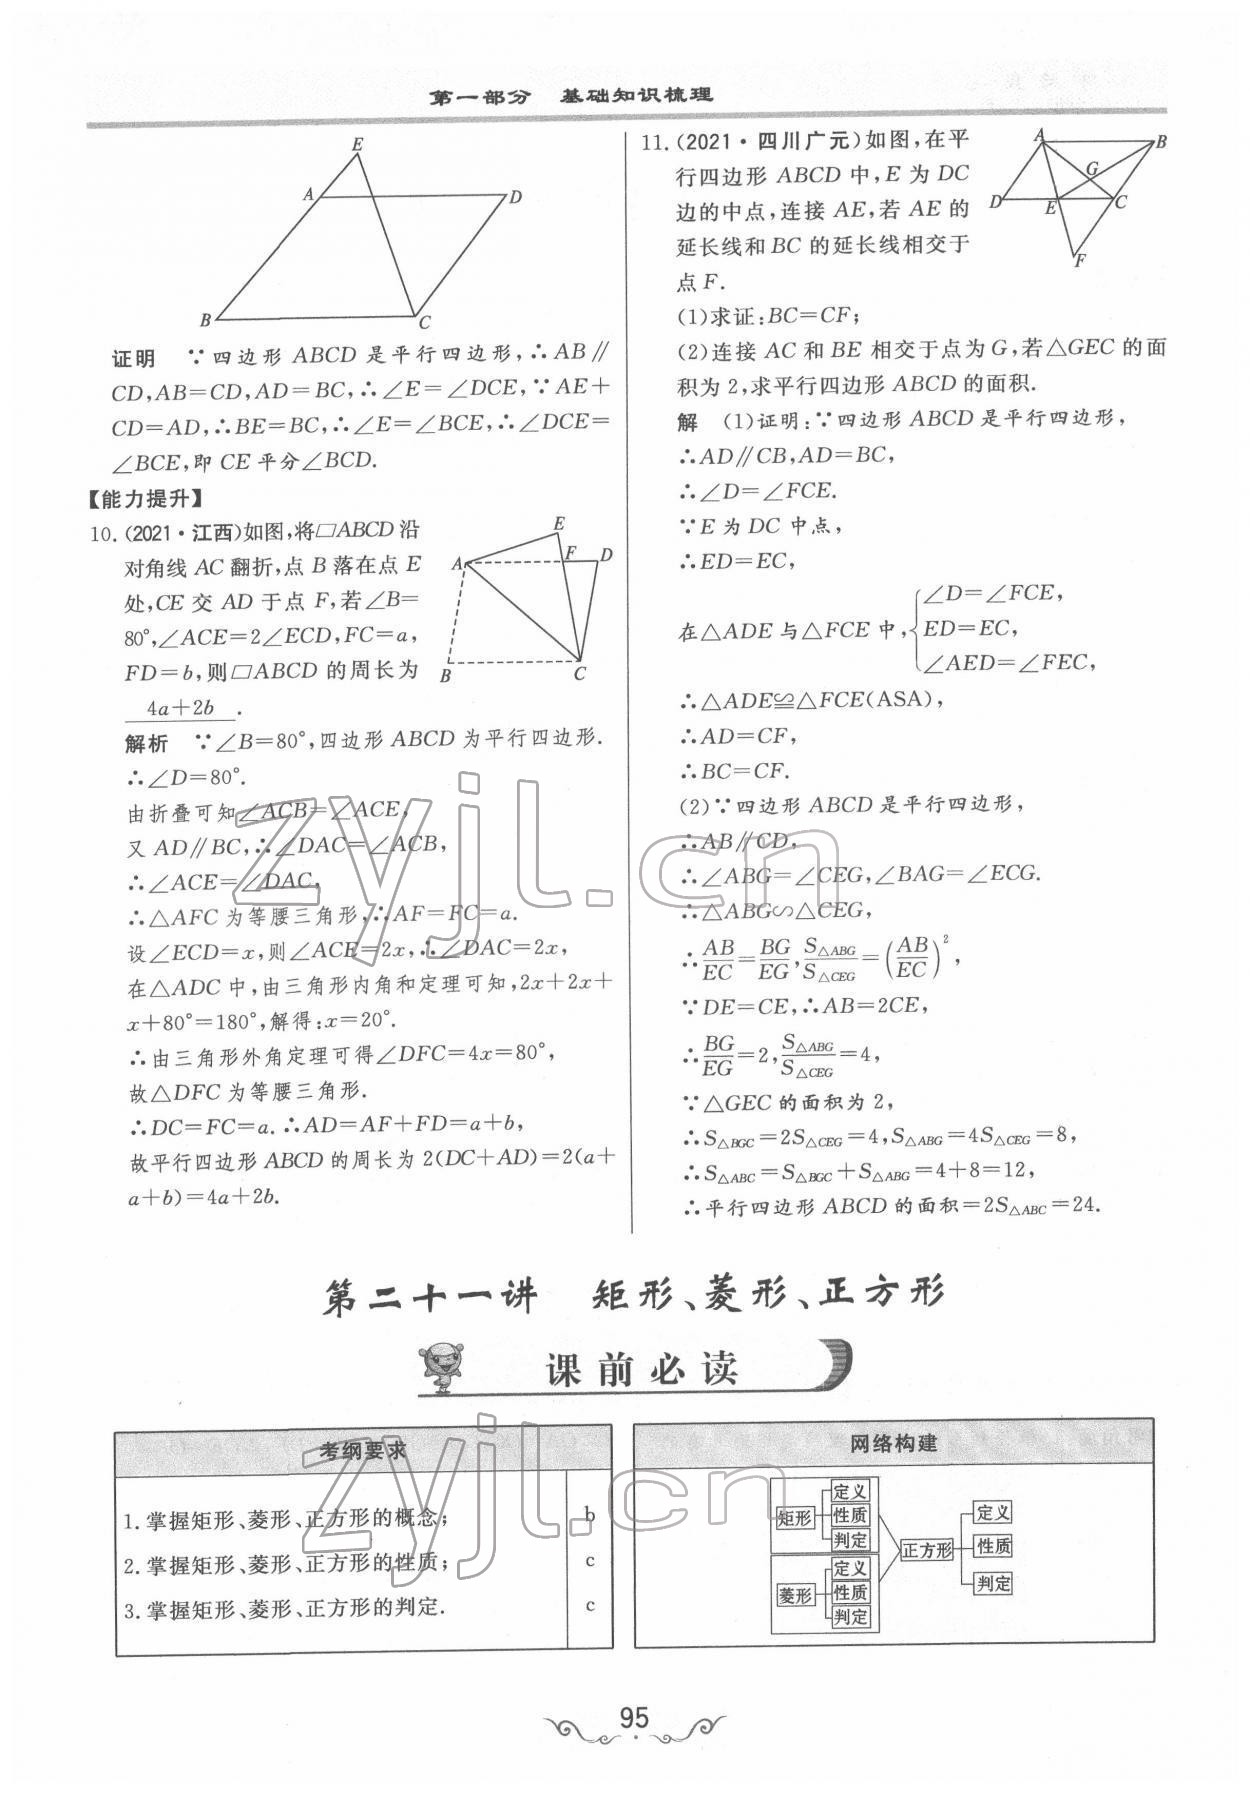 第一部分 基础知识梳理
E
A
D
B
C
证明 ∵四边形 ABCD 是平行四边形,∴AB∥
CD,AB=CD,AD=BC,∴∠E=∠DCE,∵AE+
CD=AD,∴BE=BC,∴∠E=∠BCE,∴∠DCE=
∠BCE,即 CE 平分∠BCD.
【能力提升】
10.(2021·江西)如图,将□ABCD 沿
对角线 AC 翻折,点 B 落在点 E
处,CE 交 AD 于点 F,若∠B=
80°,∠ACE=2∠ECD,FC=a,
FD=b,则□ABCD 的周长为
4a+2b .
E
A
F
D
B
C
解析 ∵∠B=80°,四边形 ABCD 为平行四边形.
∴∠D=80°.
由折叠可知∠ACB=∠ACE,
又 AD∥BC,∴∠DAC=∠ACB,
∴∠ACE=∠DAC,
∴△AFC 为等腰三角形,∴AF=FC=a.
设∠ECD=x,则∠ACE=2x,∴∠DAC=2x,
在△ADC 中,由三角形内角和定理可知,2x+2x+
x+80°=180°,解得:x=20°.
∴由三角形外角定理可得∠DFC=4x=80°,
故△DFC 为等腰三角形.
∴DC=FC=a.∴AD=AF+FD=a+b,
故平行四边形 ABCD 的周长为 2(DC+AD)=2(a+
a+b)=4a+2b.
11.(2021·四川广元)如图,在平
行四边形 ABCD 中,E 为 DC
边的中点,连接 AE,若 AE 的
延长线和 BC 的延长线相交于
点 F.
A
B
G
D
E
C
F
(1)求证:BC=CF;
(2)连接 AC 和 BE 相交于点为 G,若△GEC 的面
积为 2,求平行四边形 ABCD 的面积.
解 (1)证明:∵四边形 ABCD 是平行四边形,
∴AD∥CB,AD=BC,
∴∠D=∠FCE.
∵E 为 DC 中点,
∴ED=EC,
在△ADE 与△FCE 中,{∠D=∠FCE,
ED=EC,
∠AED=∠FEC,
∴△ADE≌△FCE(ASA),
∴AD=CF,
∴BC=CF.
(2)∵四边形 ABCD 是平行四边形,
∴AB∥CD,
∴∠ABG=∠CEG,∠BAG=∠ECG.
∴△ABG∽△CEG,
∴AB/EC=BG/EG,S△ABG/S△CEG=(AB/EC)²,
∵DE=CE,∴AB=2CE,
∴BG/EG=2,S△ABG/S△CEG=4,
∵△GEC 的面积为 2,
∴S△BGC=2S△CEG=4,S△ABG=4S△CEG=8,
∴S△ABC=S△BGC+S△ABG=4+8=12,
∴平行四边形 ABCD 的面积=2S△ABC=24.
第二十一讲 矩形、菱形、正方形
课前必读
考纲要求
1.掌握矩形、菱形、正方形的概念; b
2.掌握矩形、菱形、正方形的性质; c
3.掌握矩形、菱形、正方形的判定. c
网络构建
矩形
定义
性质
判定
菱形
定义
性质
判定
正方形
定义
性质
判定
95
zyjl.cn
zyjl.cn